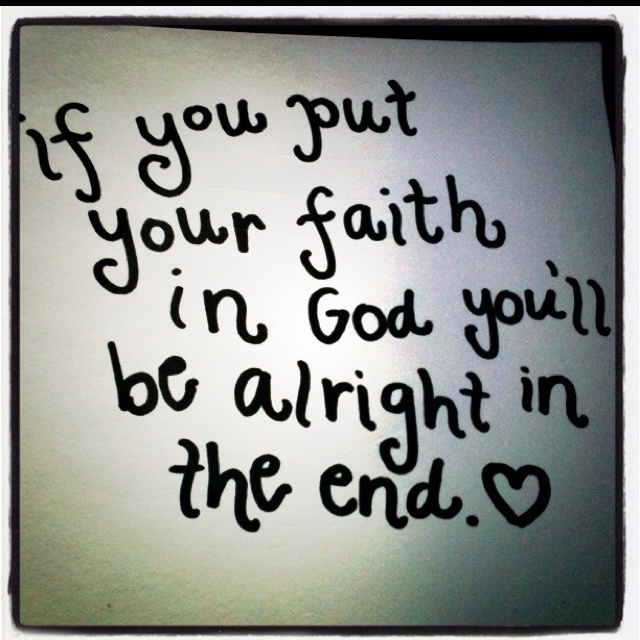 if you put
your faith
in God you'll
be alright in
the end.♡